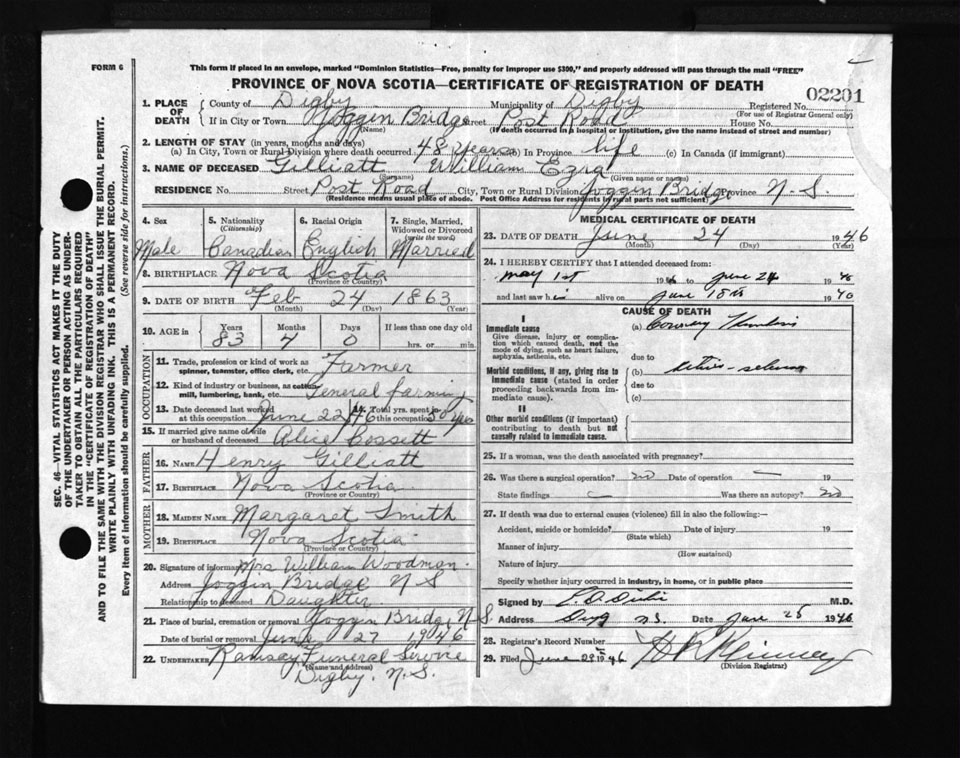 FORM 6
This form if placed in an envelope, marked "Dominion Statistics—Free, penalty for improper use $300," and properly addressed will pass through the mail "FREE"
PROVINCE OF NOVA SCOTIA—CERTIFICATE OF REGISTRATION OF DEATH
02201
1. PLACE OF DEATH { County of Digby Municipality of Digby Registered No.
(For use of Registrar General only)
If in City or Town Joggin Bridge Street Post Road House No.
(Name) (If death occurred in a hospital or institution, give the name instead of street and number)
2. LENGTH OF STAY (in years, months and days)
(a) In City, Town or Rural Division where death occurred 48 years (b) In Province life (c) In Canada (if immigrant)
3. NAME OF DECEASED Gilliatt William Ezra
(Surname) (Given name or names)
RESIDENCE No. Street Post Road City, Town or Rural Division Joggin Bridge Province N-S.
(Residence means usual place of abode. Post Office Address for residents in rural parts not sufficient)
4. Sex 5. Nationality (Citizenship) 6. Racial Origin 7. Single, Married, Widowed or Divorced (write the word)
Male Canadian English Married
8. BIRTHPLACE Nova Scotia
(Province or Country)
9. DATE OF BIRTH Feb 24 1863
(Month) (Day) (Year)
10. AGE in Years Months Days If less than one day old
83 4 0 hrs. or min.
OCCUPATION
11. Trade, profession or kind of work as spinner, teamster, office clerk, etc. Farmer
12. Kind of industry or business, as cotton mill, lumbering, bank, etc. General farming
13. Date deceased last worked at this occupation June 22/46 14. Total yrs. spent in this occupation 50 yrs
15. If married give name of wife or husband of deceased Alice Cossett
FATHER
16. NAME Henry Gilliatt
17. BIRTHPLACE Nova Scotia
(Province or Country)
MOTHER
18. MAIDEN NAME Margaret Smith
19. BIRTHPLACE Nova Scotia
(Province or Country)
20. Signature of informant Mrs William Woodman.
Address Joggin Bridge N S
Relationship to deceased Daughter.
21. Place of burial, cremation or removal Joggin Bridge, N-S.
Date of burial or removal June 27 1946
22. UNDERTAKER Ramsay Funeral Service
(Name and address)
Digby. N.S.
MEDICAL CERTIFICATE OF DEATH
23. DATE OF DEATH June 24 1946
(Month) (Day) (Year)
24. I HEREBY CERTIFY that I attended deceased from:
May 1st 1946 to June 24 1946
and last saw him alive on June 18th 1946
CAUSE OF DEATH
I
Immediate cause (a) Coronary Thrombosis
Give disease, injury or complication which caused death, not the mode of dying, such as heart failure, asphyxia, asthenia, etc.
due to
Morbid conditions, if any, giving rise to immediate cause (stated in order proceeding backwards from immediate cause).
(b)
due to
(c)
II
Other morbid conditions (if important) contributing to death but not causally related to immediate cause.
25. If a woman, was the death associated with pregnancy?
26. Was there a surgical operation? no Date of operation — 19
State findings Was there an autopsy? no
27. If death was due to external causes (violence) fill in also the following:—
Accident, suicide or homicide? Date of injury 19
(State which)
Manner of injury
(How sustained)
Nature of injury
Specify whether injury occurred in industry, in home, or in public place
Signed by M.D.
Address Digby N.S. Date June 25 1946
28. Registrar's Record Number
29. Filed June 29th 1946
(Division Registrar)
SEC. 46—VITAL STATISTICS ACT MAKES IT THE DUTY
OF THE UNDERTAKER OR PERSON ACTING AS UNDERTAKER TO OBTAIN ALL THE PARTICULARS REQUIRED
IN THE "CERTIFICATE OF REGISTRATION OF DEATH"
AND TO FILE THE SAME WITH THE DIVISION REGISTRAR WHO SHALL ISSUE THE BURIAL PERMIT.
WRITE PLAINLY WITH UNFADING INK. THIS IS A PERMANENT RECORD.
Every item of information should be carefully supplied. (See reverse side for instructions.)